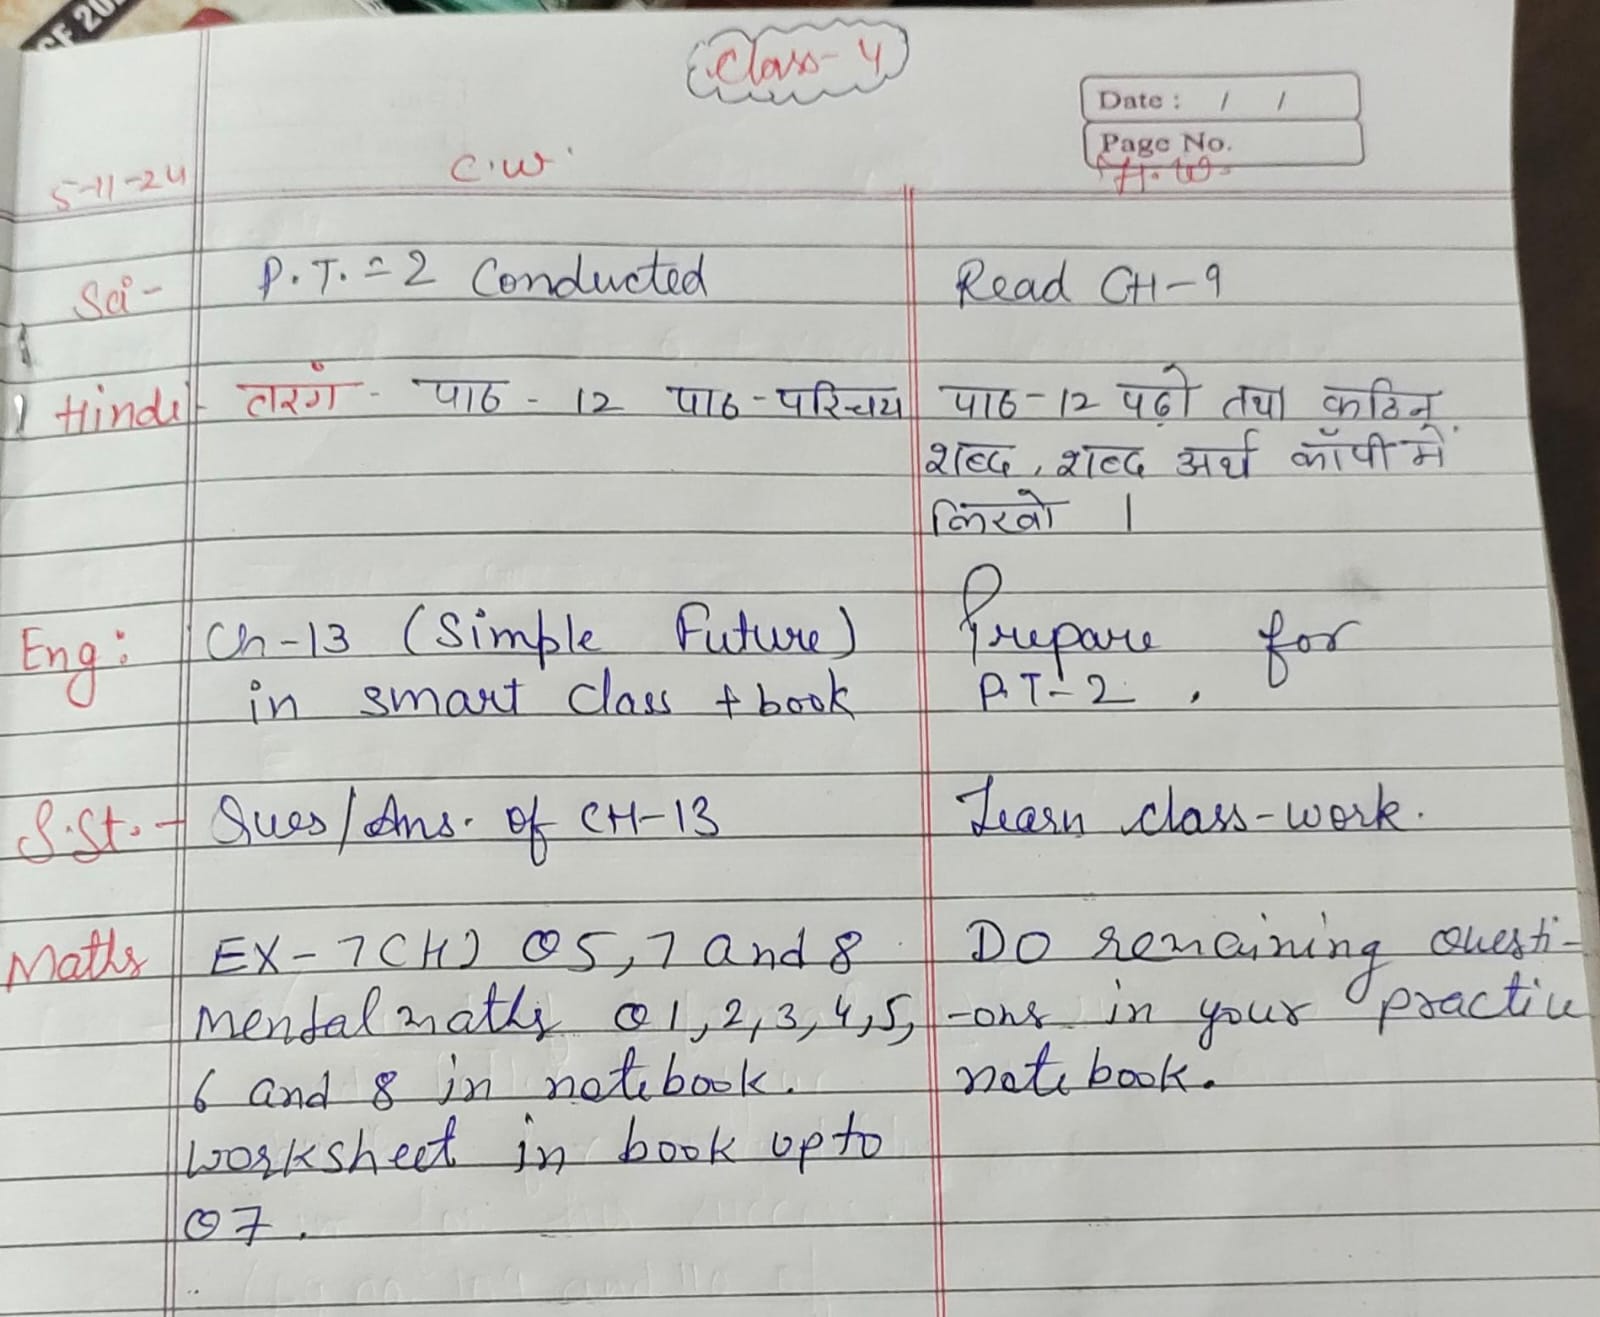 CF 20
Class-4
Date : / /
Page No.
5-11-24 C.W. H.W.
Sci- P.T.-2 Conducted Read CH-9
Hindi- तरंग - पाठ - 12 पाठ-परिचय पाठ-12 पढ़ो तथा कठिन
शब्द, शब्द अर्थ कॉपी में
लिखो ।
Eng: Ch-13 (Simple Future) Prepare for
in smart class + book P.T-2.
S.St. - Ques/Ans. of CH-13 Learn class-work.
Maths EX-7(H) Q5,7 and 8 Do remaining questi-
mental maths Q1,2,3,4,5, -ons in your practice
6 and 8 in notebook. notebook.
Worksheet in book upto
Q7.